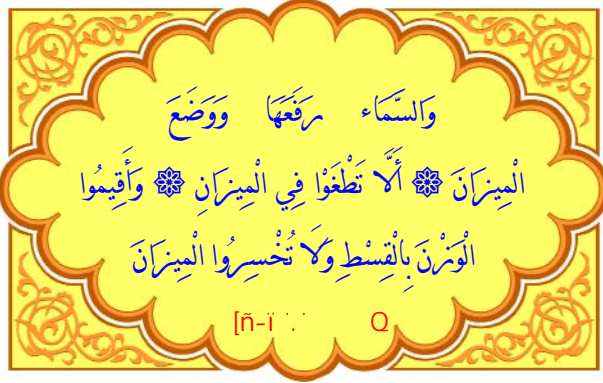 وَالسَّمَاء رَفَعَهَا وَوَضَعَ
الْمِيزَانَ ۞ أَلَّا تَطْغَوْا فِي الْمِيزَانِ ۞ وَأَقِيمُوا
الْوَزْنَ بِالْقِسْطِ وَلَا تُخْسِرُوا الْمِيزَانَ
[ñ-ï ˙.˙ Q